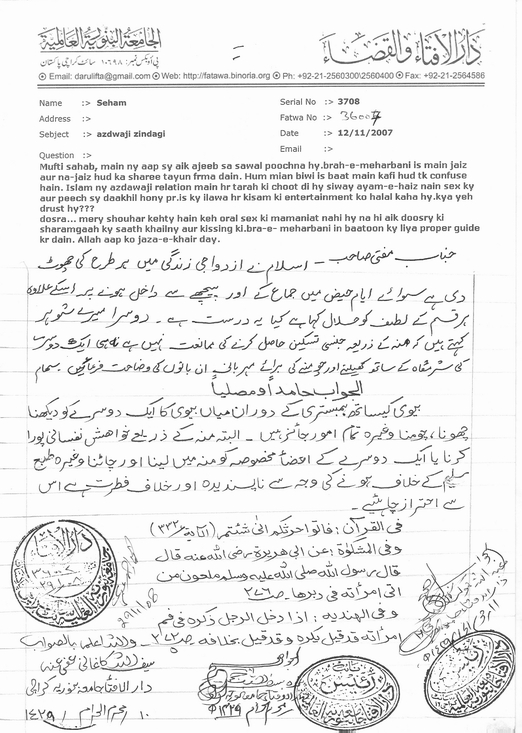 الجامعة البنورية العالمية
دار الافتاء والقضاء
پی او بکس نمبر: ۱۰۶۹۸ سائٹ کراچی پاکستان
Email: darulifta@gmail.com Web: http://fatwa.binoria.org Ph: +92-21-2560300\2560400 Fax: +92-21-2564586
Name :> Seham Serial No :> 3708
Address :> Fatwa No :> 36007
Sebject :> azdwaji zindagi Date :> 12/11/2007
Email :>
Question :>
Mufti sahab, main ny aap sy aik ajeeb sa sawal poochna hy.brah-e-meharbani is main jaiz
aur na-jaiz hud ka sharee tayun frma dain. Hum mian biwi is baat main kafi hud tk confuse
hain. Islam ny azdawaji relation main hr tarah ki choot di hy siway ayam-e-haiz nain sex ky
aur peech sy daakhil hony pr.is ky ilawa hr kisam ki entertainment ko halal kaha hy.kya yeh
drust hy???
dosra... mery shouhar kehty hain keh oral sex ki mamaniat nahi hy na hi aik doosry ki
sharamgaah ky saath khailny aur kissing ki.bra-e- meharbani in baatoon ky liya proper guide
kr dain. Allah aap ko jaza-e-khair day.
جناب مفتی صاحب – اسلام نے ازدواجی زندگی میں ہر طرح کی چھوٹ
دی ہے سوائے ایام حیض میں جماع کے اور پیچھے سے داخل ہونے پر اسکے علاوہ
ہر قسم کے لطف کو حلال کہا ہے کیا یہ درست ہے ۔ دوسرا میرے شوہر
کہتے ہیں کہ منہ کے ذریعہ جنسی تسکین حاصل کرنے کی ممانعت نہیں ہے نہ ہی ایک دوسرے
کی شرمگاہ کے ساتھ کھیلنے اور چومنے کی برائے مہربانی ان باتوں کی وضاحت فرمائیں
الجواب حامداً ومصلیاً
بیوی کیساتھ ہمبستری کے دوران میاں بیوی کا ایک دوسرے کو دیکھنا
چھونا، چومنا وغیرہ تمام امور جائز ہیں ۔ البتہ منہ کے ذریعے خواہش نفسانی پورا
کرنا یا ایک دوسرے کے اعضاءِ مخصوصہ کو منہ میں لینا اور چاٹنا وغیرہ طبع
سلیم کے خلاف ہونے کی وجہ سے ناپسندیدہ اور خلاف فطرت ہے اس
سے احتراز چاہئیے ۔
فی القرآن : فاتوا حرثکم انی شئتم (الآیۃ ۲۲۳)
وفی المشکوٰۃ : عن ابی ھریرۃ رضی اللہ عنہ قال
قال رسول اللہ صلی اللہ علیہ وسلم ملعون من
اتی امرأتہ فی دبرھا
وفی الھندیہ : اذا دخل الرجل ذکرہ فی فم
امرأتہ قد قیل یکرہ وقد قیل بخلافہ
واللہ اعلم بالصواب
دار الافتاء جامعہ بنوریہ کراچی
۱۰ محرم الحرام ۱۴۲۹
دار الافتاء
29/1/08
رئیس